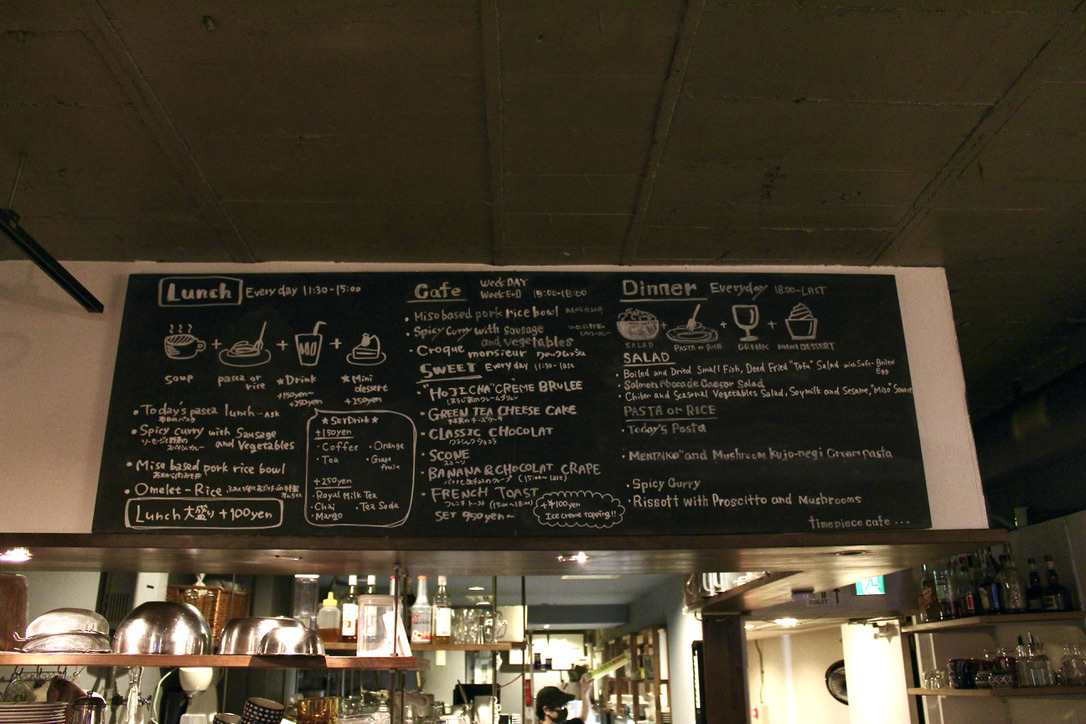 Lunch Everyday 11:30-15:00
soup
pasta or rice
★Drink +150yen~ +250yen
★Mini dessert +250yen
・Today's pasta lunch... ASK
本日のパスタ
・Spicy curry with Sausage and Vegetables
・Miso based pork rice bowl
・Omelet-Rice
Lunch 大盛り +100yen
★SETDrink★
+150yen
・Coffee ・Orange
・Tea ・Grape fruit
+250yen
・Royal Milk Tea
・Chai ・Tea Soda
・Mango
Cafe WeekDAY
WeekEND 15:00-18:00
・Miso based pork rice bowl
・Spicy Curry with Sausage and vegetables
・Croque monsieur クロックムッシュ
SWEET Everyday 11:30-last
・"HOJICHA" CRÈME BRULEE
ほうじ茶のクレームブリュレ
・GREEN TEA CHEESE CAKE
・CLASSIC CHOCOLAT
クラシックショコラ
・SCONE
スコーン
・BANANA & CHOCOLAT CRAPE
(15:00~last)
・FRENCH TOAST
フレンチトースト (15:00~18:00)
SET 950yen~
+¥100yen
Ice creme topping!!
Dinner Everyday 18:00-LAST
SALAD
PASTA or RICE
DRINK
MINI DESSERT
SALAD
・Boiled and Dried Small Fish, Deed Fried "Tofu" Salad with Soft-Boiled Egg
・Salmon Abocade Caesar Salad
・Chiken and Seasonal Vegetables Salad, Soymilk and Sesame, "Miso" Source
PASTA or RICE
・Today's Pasta
・"MENTAIKO" and Mushroom Kujo-negi Cream pasta
・Spicy Curry
・Rissoft with Proscitto and Mushrooms
timepiece cafe...
TOILET